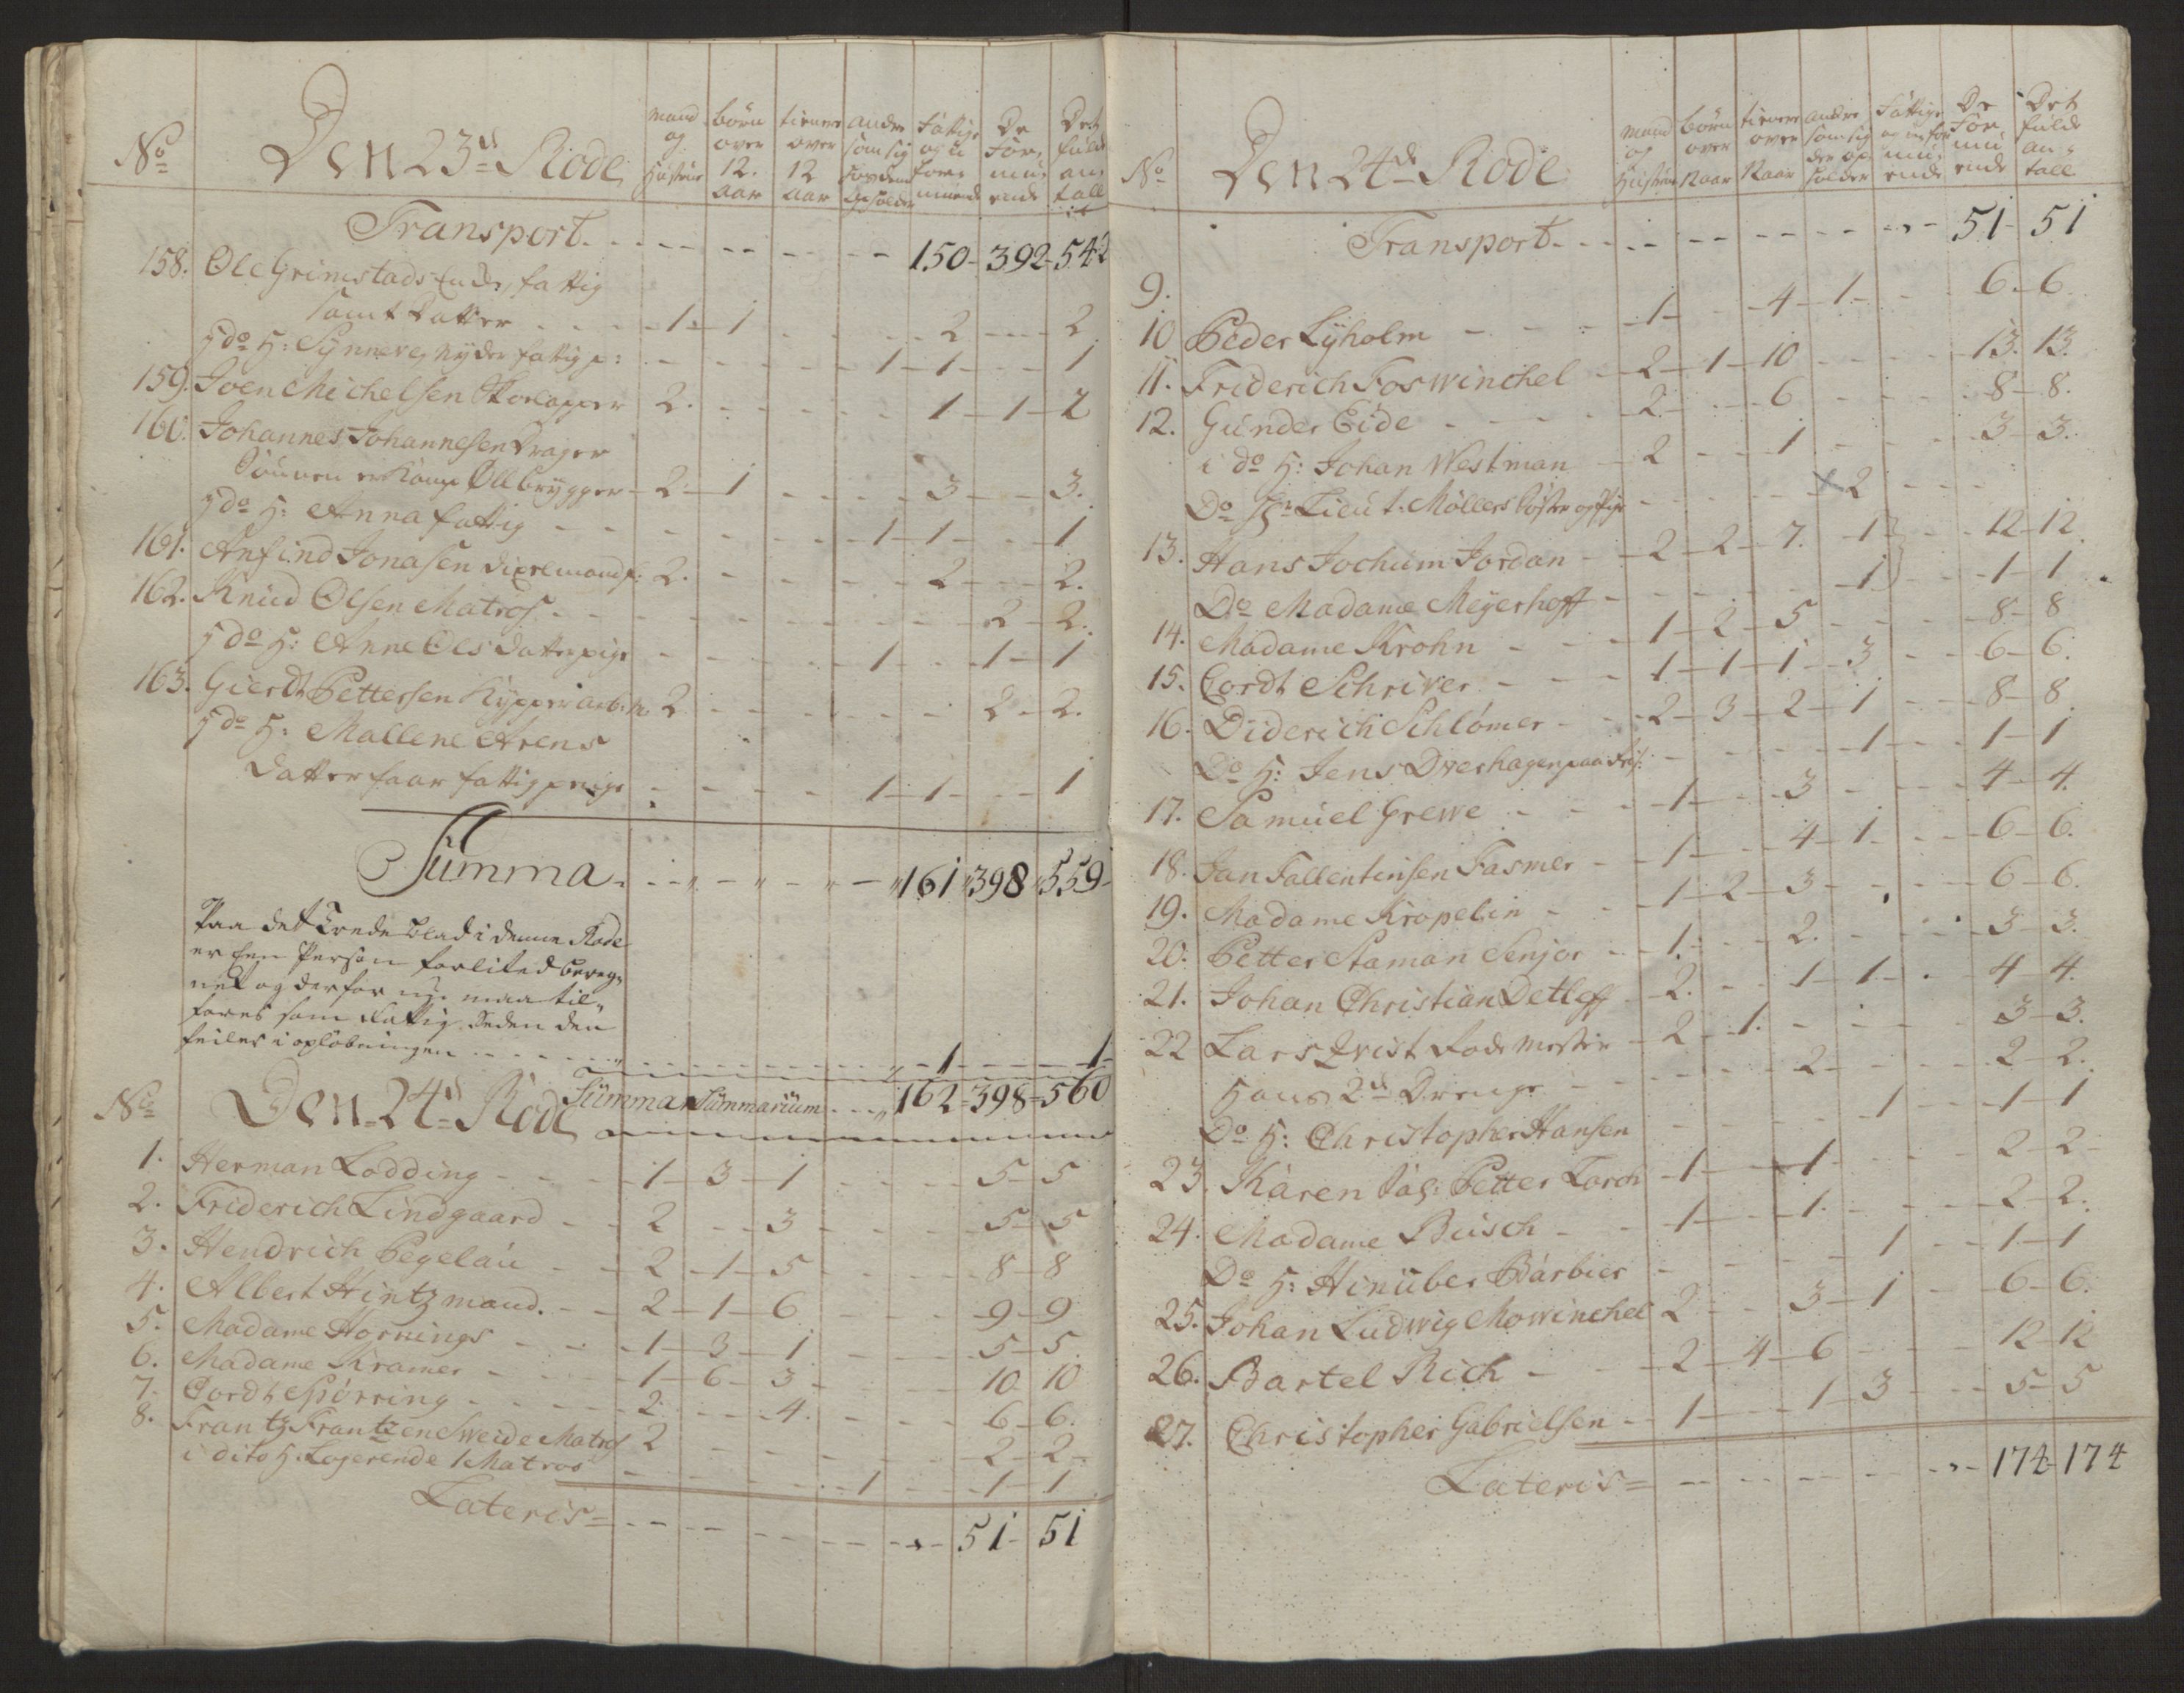 No Den 23d Rode mand og Hustrue börn over 12. aar tienere over 12 aar andre som sig opholder fattige og u formuende De For muende Det fulde an tall
Transport. 150 - 392 - 542
158. Ole Grimstads Enke, fattig
samt datter 1 - 1 2 2
i do H: Synneve, nyder fattig p: 1 - 1 1
159. Joen Michelsen Skoelapper 2. 1 - 1 - 2
160. Johannes Johannesen Drager
Konen er Øllbrygger 2 - 1 3 3.
i do H: Anna fattig 1 - 1 1
161. Anfind Jonasen 2. 2 2.
162. Knud Olsen Matros 2 2.
i do H: Anne Ols datter pige 1 1 - 1
163. Gierdt Pettersen 2 2 - 2.
i do H: Mallene Arens
datter faar fattig penge 1 - 1 1
Summa 161 398 559
Paa det Trede blad i denne Rode
er Een Person forlited bereg-
net og derfor nu maa til-
føres som fattig, siden den
feiler i opløbningen 1 1
Summa Summarium 162 - 398 - 560
No Den 24d Rode
1. Herman Lodding 1 - 3 - 1 5 - 5
2. Friderich Lindgaard 2 3 5 5
3. Hendrich Pegelau 2 - 1 - 5 8 - 8
4. Albert Hintzmand. 2 - 1 - 6 9 - 9
5. Madame Hornings 1 - 3 - 1 5 - 5
6. Madame Kramer 1 - 6 - 3 10 10
7. Cordt Spörring 2. 4. 6 - 6.
8. Frantz Frantzen Sweide Matros 2 2 - 2
i dito H. Logerende 1 Matros 1 1 - 1
Lateris 51 - 51
No Den 24de Rode mand og Hustrue börn over 12 aar tienere over 12 aar andre som sig der op holder fattige og u for mu ende De For mu ende Det fulde an tall
Transport 51 - 51
9. 1 4 - 1 6 - 6
10 Peder Lyholm 2 - 1 - 10 13. 13.
11. Friderich Foswinchel 2. 6 8 - 8.
12. Gunder Eide 2 1 3 - 3.
i do H: Johan Westman x 2
Do Hr Lieut. Möllers Söster og Pige
13. Hans Jochum Jordan 2 - 2 - 7. 1 12 - 12.
Do Madame Meyerhoff 1 1 - 1
14. Madame Krohn 1 - 2 - 5 8 - 8
15. Cordt Schriver 1 - 1 - 1 - 3 6 - 6.
16. Diderich Schlömer 2 - 3 - 2 - 1 8 - 8
Do H: Jens Dreshagen 1 1 - 1
17. Samuel Grewe 1 3 4 - 4.
18. Jan Fallentinsen Fasmer 1 4 - 1 6 - 6.
19. Madame Kropelin 1 - 2 - 3 6 - 6.
20. Petter Staman Senjor 1. 2. 3 - 3.
21. Johan Christian Detleff 2. 1 - 1 4 - 4.
22 Lars Qvist Rodemester 2 - 1. 3 - 3.
Hans 2de Drenge 2 2 - 2.
Do H: Christopher Hansen 1 1 - 1
23. Karen Sal: Petter Torch 1 1 2 - 2
24. Madame Busch 1 1 2 - 2.
Do H: Hinüber Barbier 1 1 - 1
25. Johan Ludwig Mowinchel 2 3 - 1 6 - 6.
26. Bartel Rich 2 - 4 - 6 12 - 12
27. Christopher Gabrielsen 1 1 - 3 5 - 5
Lateris 174 - 174